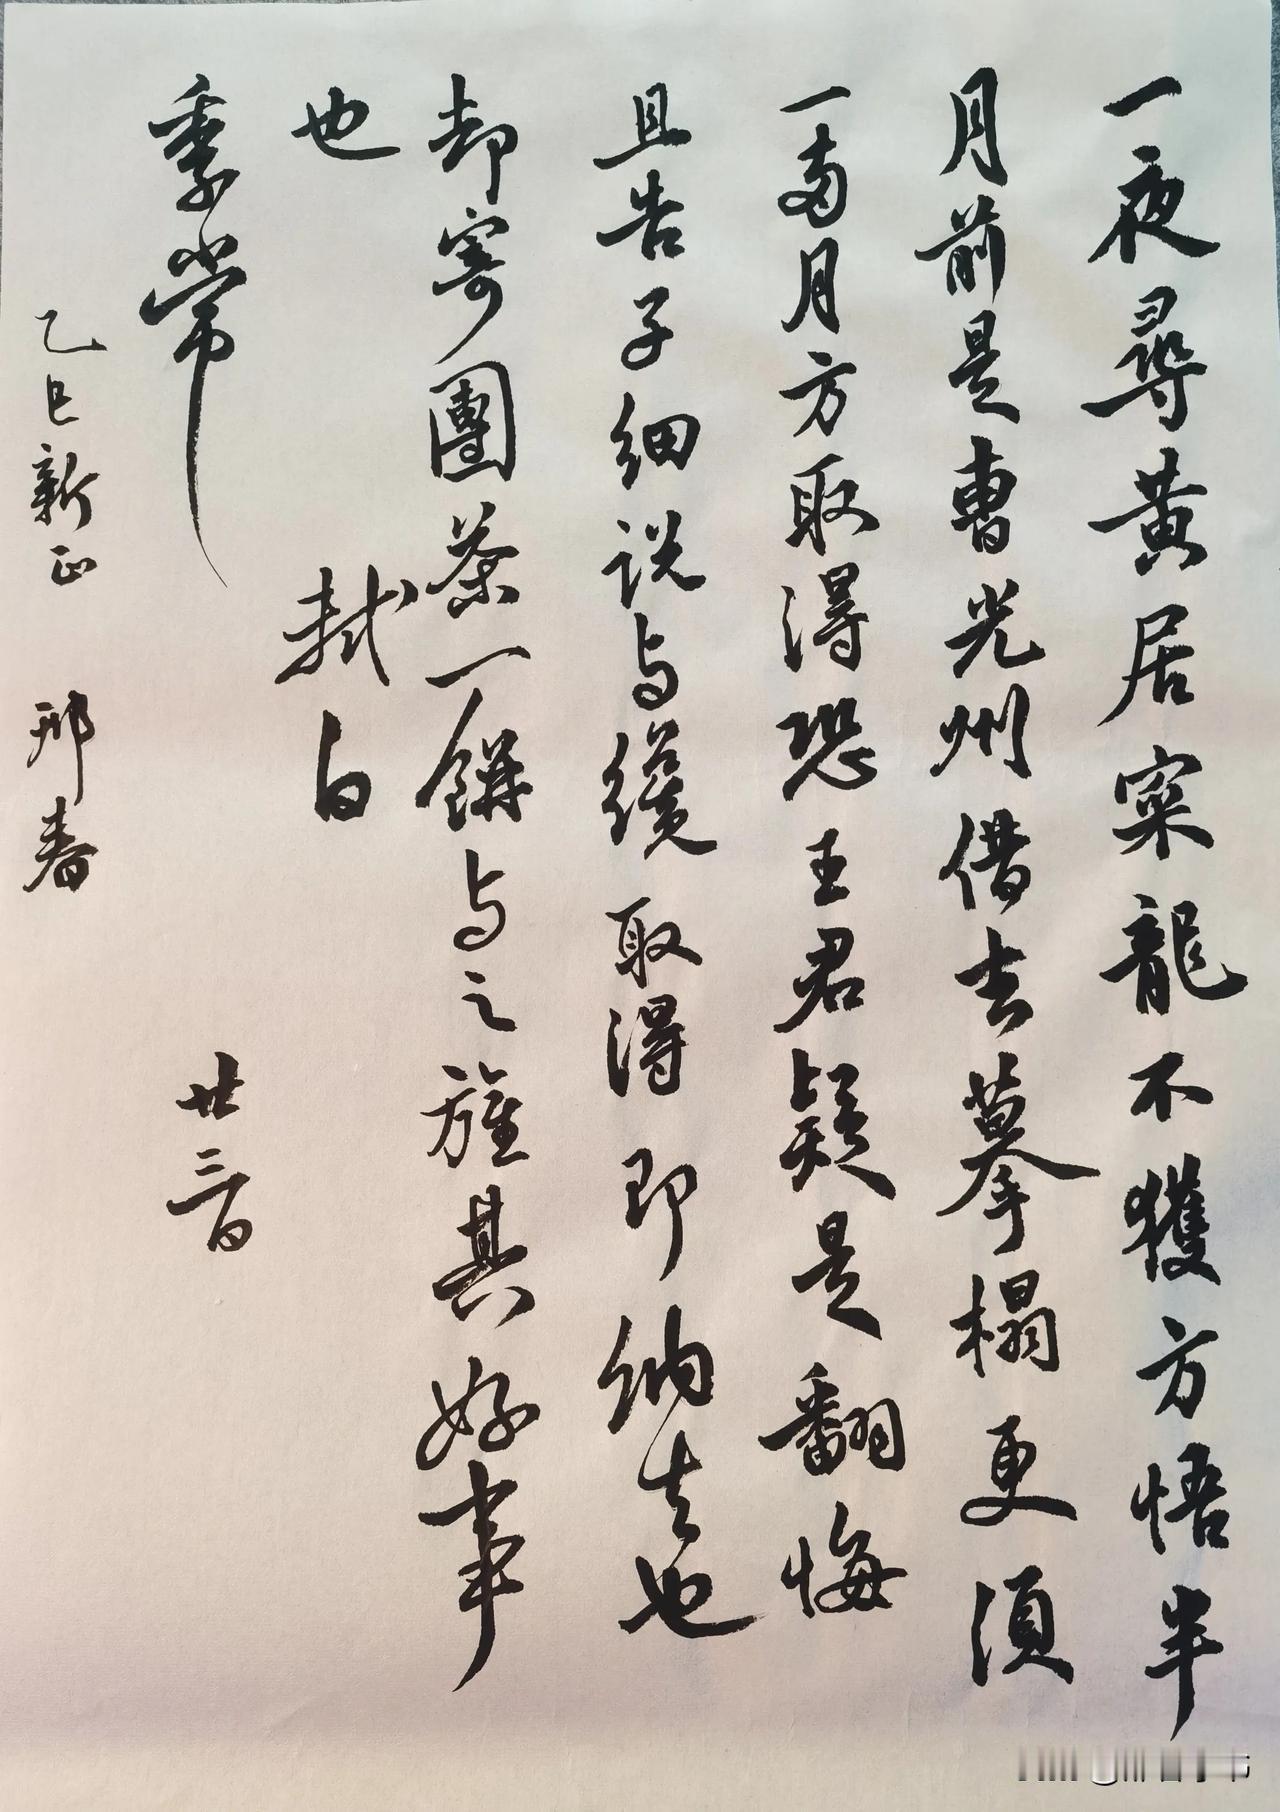 一夜尋黃居寀龍不獲方悟半
月前是曹光州借去摹榻更須
一兩月方取得恐王君疑是翻悔
且告子細说与纔取得即納去也
却寄團茶一餅与之旌其好事
也
軾白
季常
廿三日
乙巳新正 邢春